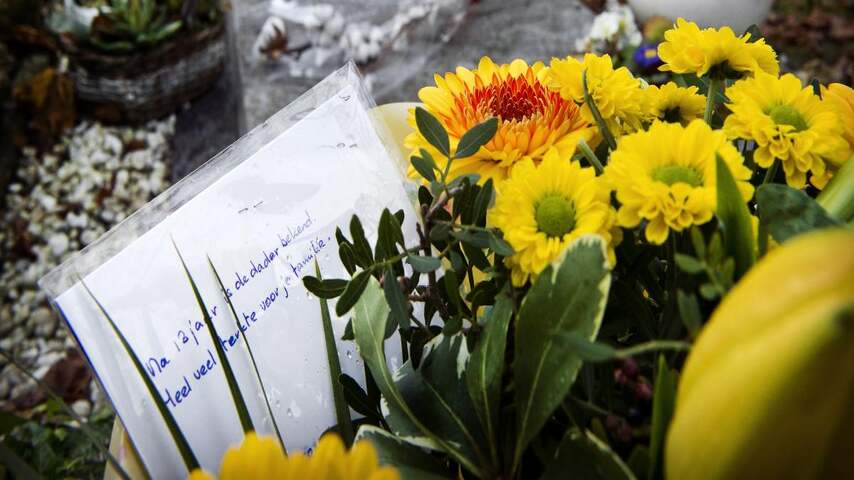 Na 13 jaar is de dader bekend.
Heel veel sterkte voor je familie.